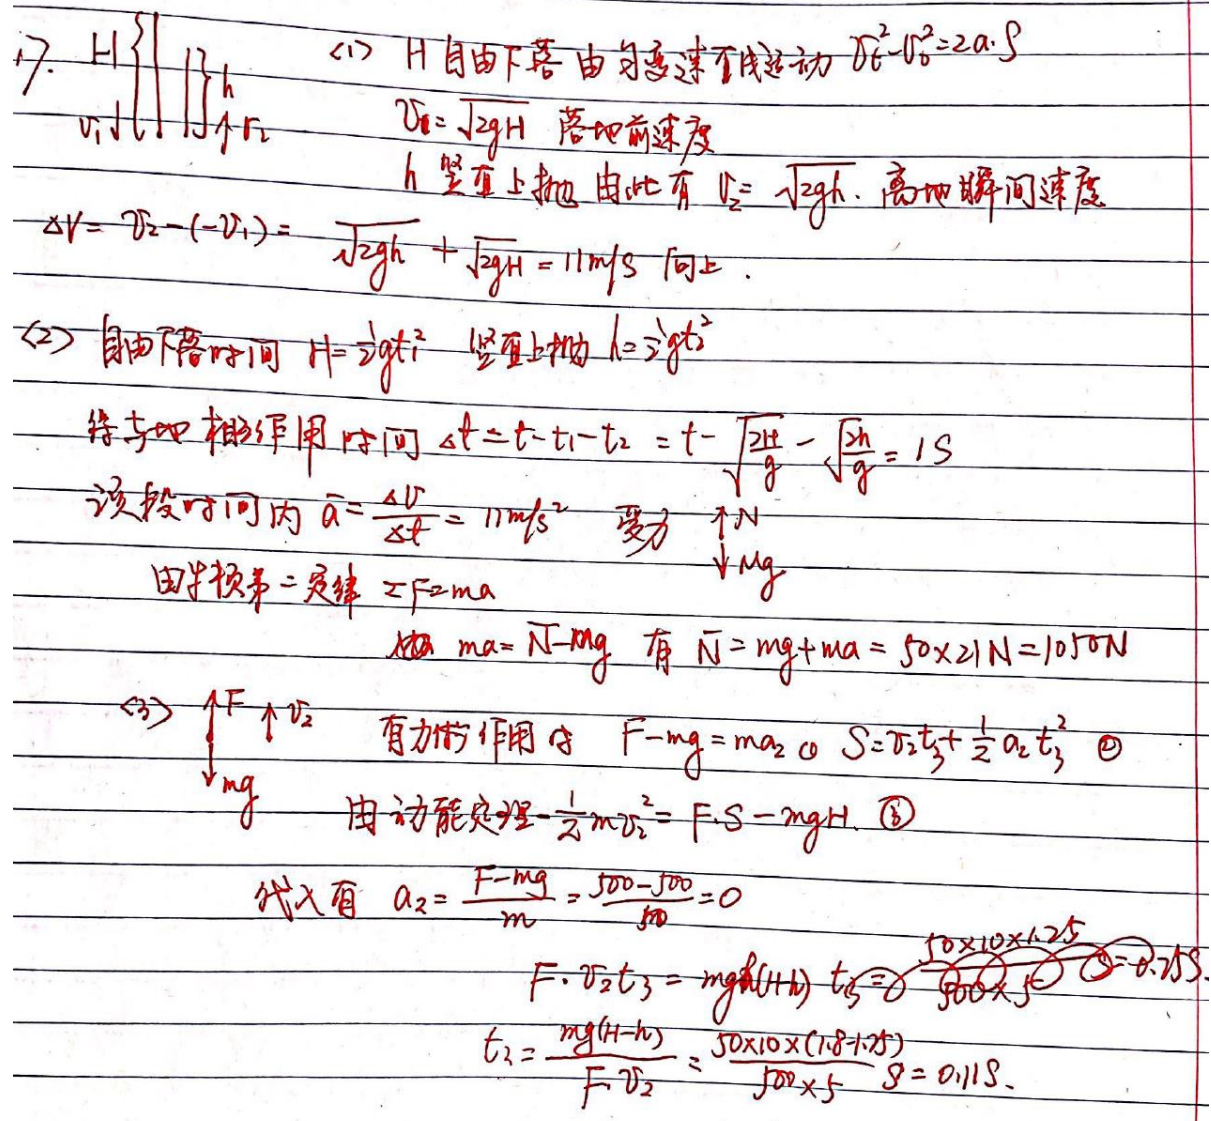 17. H h v₁ v₂
<1> H 自由下落 由匀变速直线运动 vₜ²-v₀²=2a·S
v₁=√2gH 落地前速度
h 竖直上抛 由此有 v₂=√2gh. 离地瞬间速度
ΔV=v₂-(-v₁)=√2gh+√2gH=11m/s 向上.
<2> 自由下落时间 H=½gt₁² 竖直上抛 h=½gt₂²
与地相互作用时间 Δt=t-t₁-t₂=t-√(2H/g)-√(2h/g)=1S
该段时间内 ā=Δv/Δt=11m/s² 受力 ↑N ↓Mg
由牛顿第二定律 ΣF=ma
ma=N̄-mg 有 N̄=mg+ma=50×21N=1050N
<3> ↑F ↑v₂ ↓mg 有力作用时 F-mg=ma₂ ① S=v₂t₃+½a₂t₃² ②
由动能定理-½mv₂²=F·S-mgH. ③
代入有 a₂=(F-mg)/m=(500-500)/50=0
F·v₂t₃=mg(H-h)
t₃=mg(H-h)/(F·v₂)=50×10×(1.8-1.25)/(500×5) S=0.11S.